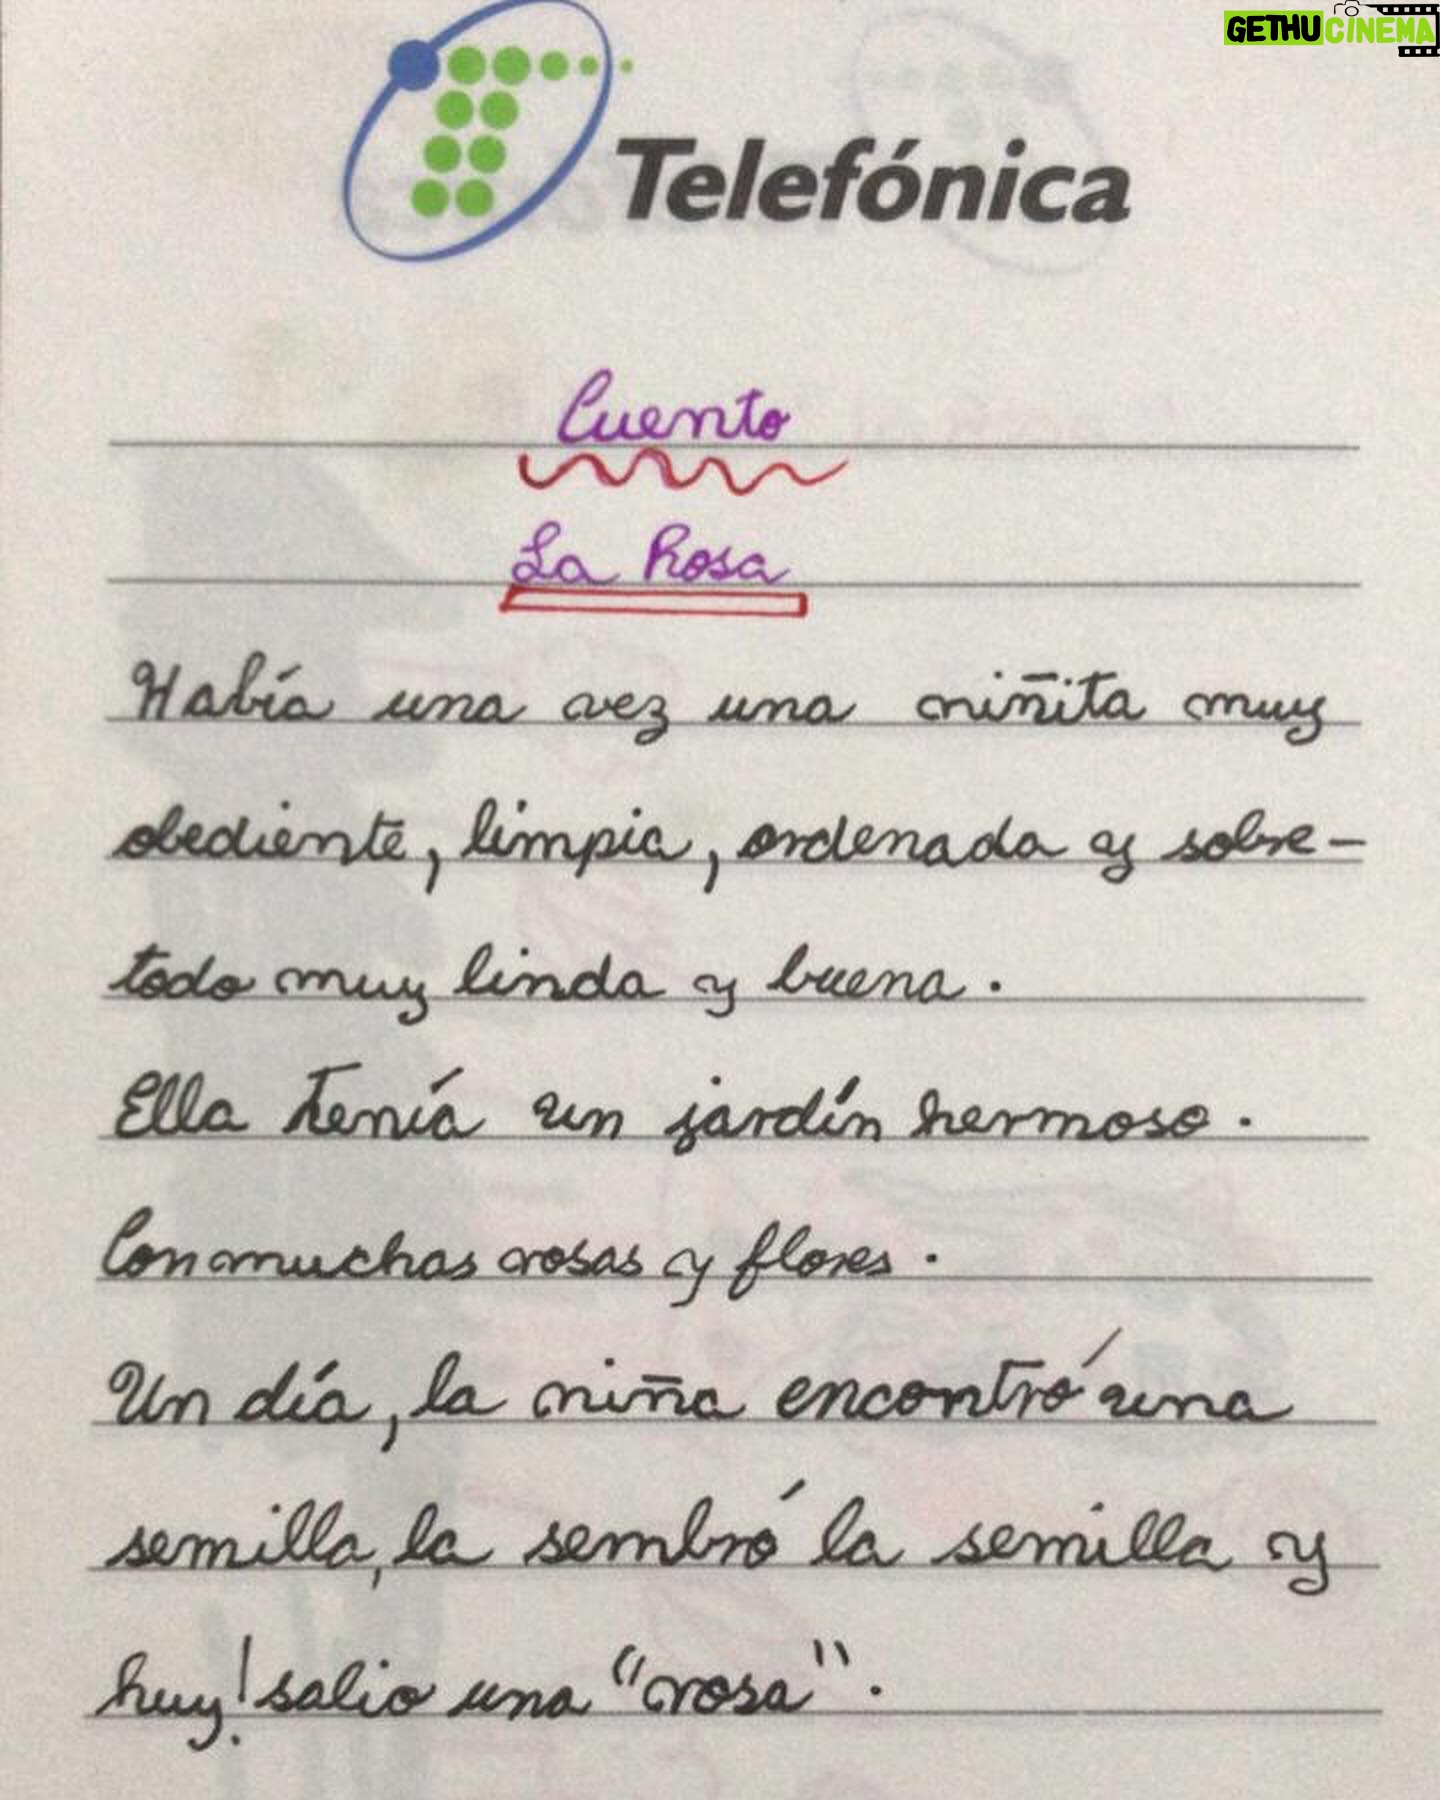 GETHUCINEMA
Telefónica
Cuento
La Rosa
Había una vez una niñita muy
obediente, limpia, ordenada y sobre-
todo muy linda y buena.
Ella tenía un jardín hermoso.
Con muchas rosas y flores.
Un día, la niña encontró una
semilla, la sembró la semilla y
huy! salio una "rosa".